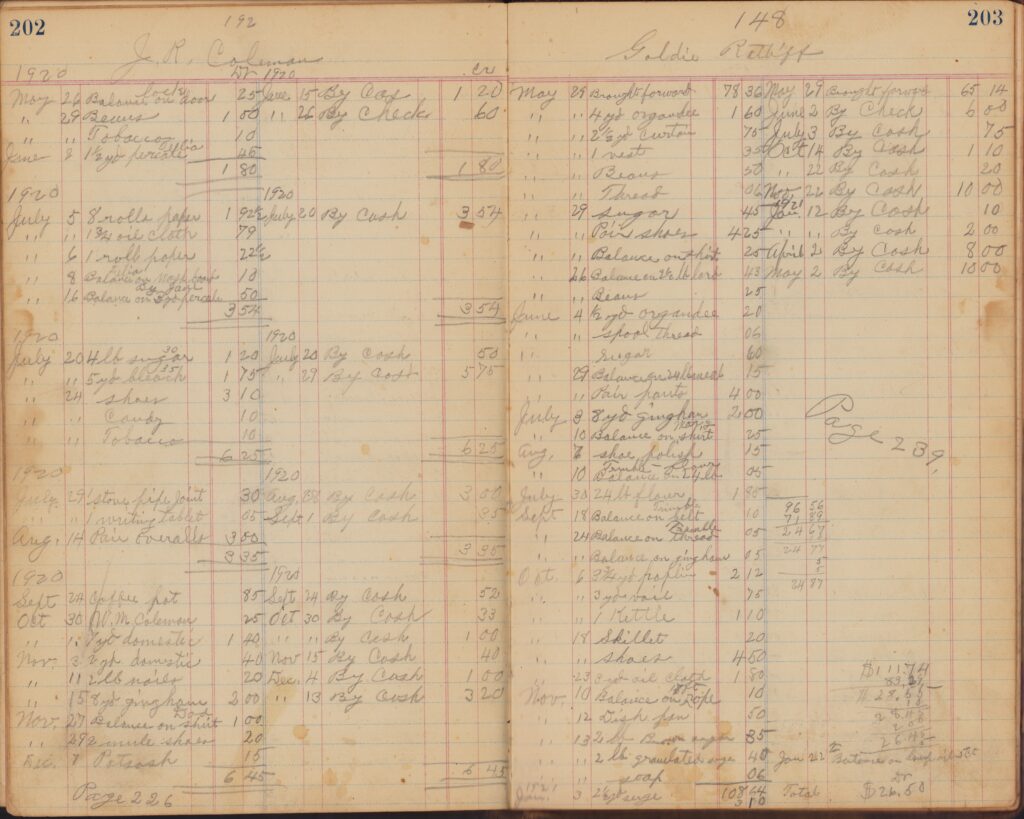 202
192
J. R. Coleman
1920 Dr 1920 Cr
May 26 Balance on door lock 25 June 15 By Cas 1 20
" 29 Beans 1 00 " 26 By Check 60
" " Tobacco 10
June 8 1½ yd percale 45
1 80 1 80
1920 1920
July 5 8 rolls paper 1 92½ July 20 By Cash 3 54
" " 1¾ oil cloth 79
" 6 1 roll paper 22½
" 8 Balance on Wash 10
" 16 Balance on 3 yd percale 50
3 54 3 54
1920 1920
July 20 4 lb sugar 30 1 20 July 20 By Cash 50
" " 5 yd bleach 35 1 75 " 29 By Cost 5 75
" 24 shoes 3 10
" " Candy 10
" " Tobacco 10
6 25 6 25
1920 1920
July 29 1 stove pipe joint 30 Aug By Cash 3 00
" " 1 writing tablet 05 Sept 1 By Cash 35
Aug. 14 Pair overalls 3 00
3 35 3 35
1920 1920
Sept 24 Coffee pot 85 Sept 24 By Cash 52
Oct 30 W. M Coleman 25 Oct 30 By Cash 33
" " 7 yd domestic 1 40 " " By Cash 1 00
Nov. 3 2 yd domestic 40 Nov 15 By Cash 40
" 11 2 lb nails 20 Dec. 4 By Cash 1 00
" 15 8 yd gingham 2 00 " 13 By Cash 3 20
Nov. 27 Balance on shirt 1 00
" 29 2 mule shoes 20
Dec. 7 Potash 15
6 45 6 45
Page 226
203
148
Goldie Ratliff
May 29 Brought forward 78 36 May 29 Brought forward 65 14
" " 4 yd organdee 1 60 June 2 By Check 6 00
" " 2½ yd Curtin 75 July 3 By Cash 75
" " 1 vest 35 Oct 14 By Cash 1 10
" " Beans 50 " 22 By Cash 20
" " Thread 06 Nov. 22 By Cash 10 00
" 29 sugar 45 1921 Jan. 12 By Cash 10
" " Pair shoes 4 25 " " By Cash 2 00
" " Balance on shirt 25 April 2 By Cash 8 00
" 26 Balance on 2½ lb lard 43 May 2 By Cash 10 00
" " Beans 25
June 4 ½ yd organdee 20
" " spool thread 06
" " Sugar 60
" 29 Balance on 24 lb meal 15
" " Pair pants 4 00
July 3 8 yd gingham 2 00
Page 239,
" 10 Balance on shirt 25
Aug, 7 shoe polish 15
" 10 Balance on 24 lb 05
July 30 24 lb flour 1 85
96 56
Sept 18 Balance on belt 10
71 89
" 24 Balance on thread 05
24 67
" " Balance on gingham 05
24 77
5
Oct. 6 3¾ yd poplin 2 12
24 87
" " 3 yd vail 75
" " 1 Kettle 1 10
" 18 Skillet 20
" " shoes 4 50
$111 74
" 23 3 yd oil cloth 1 80
Nov. 10 Balance on rope 10
" 12 Dish pan 50
" 13 2 lb Brown sugar 35
" " 2 lb granulated sugar 40 Jan 22
" " soap 06
1921 Jan. 3 2½ yd surge 108 64 Total $26.50
3 10